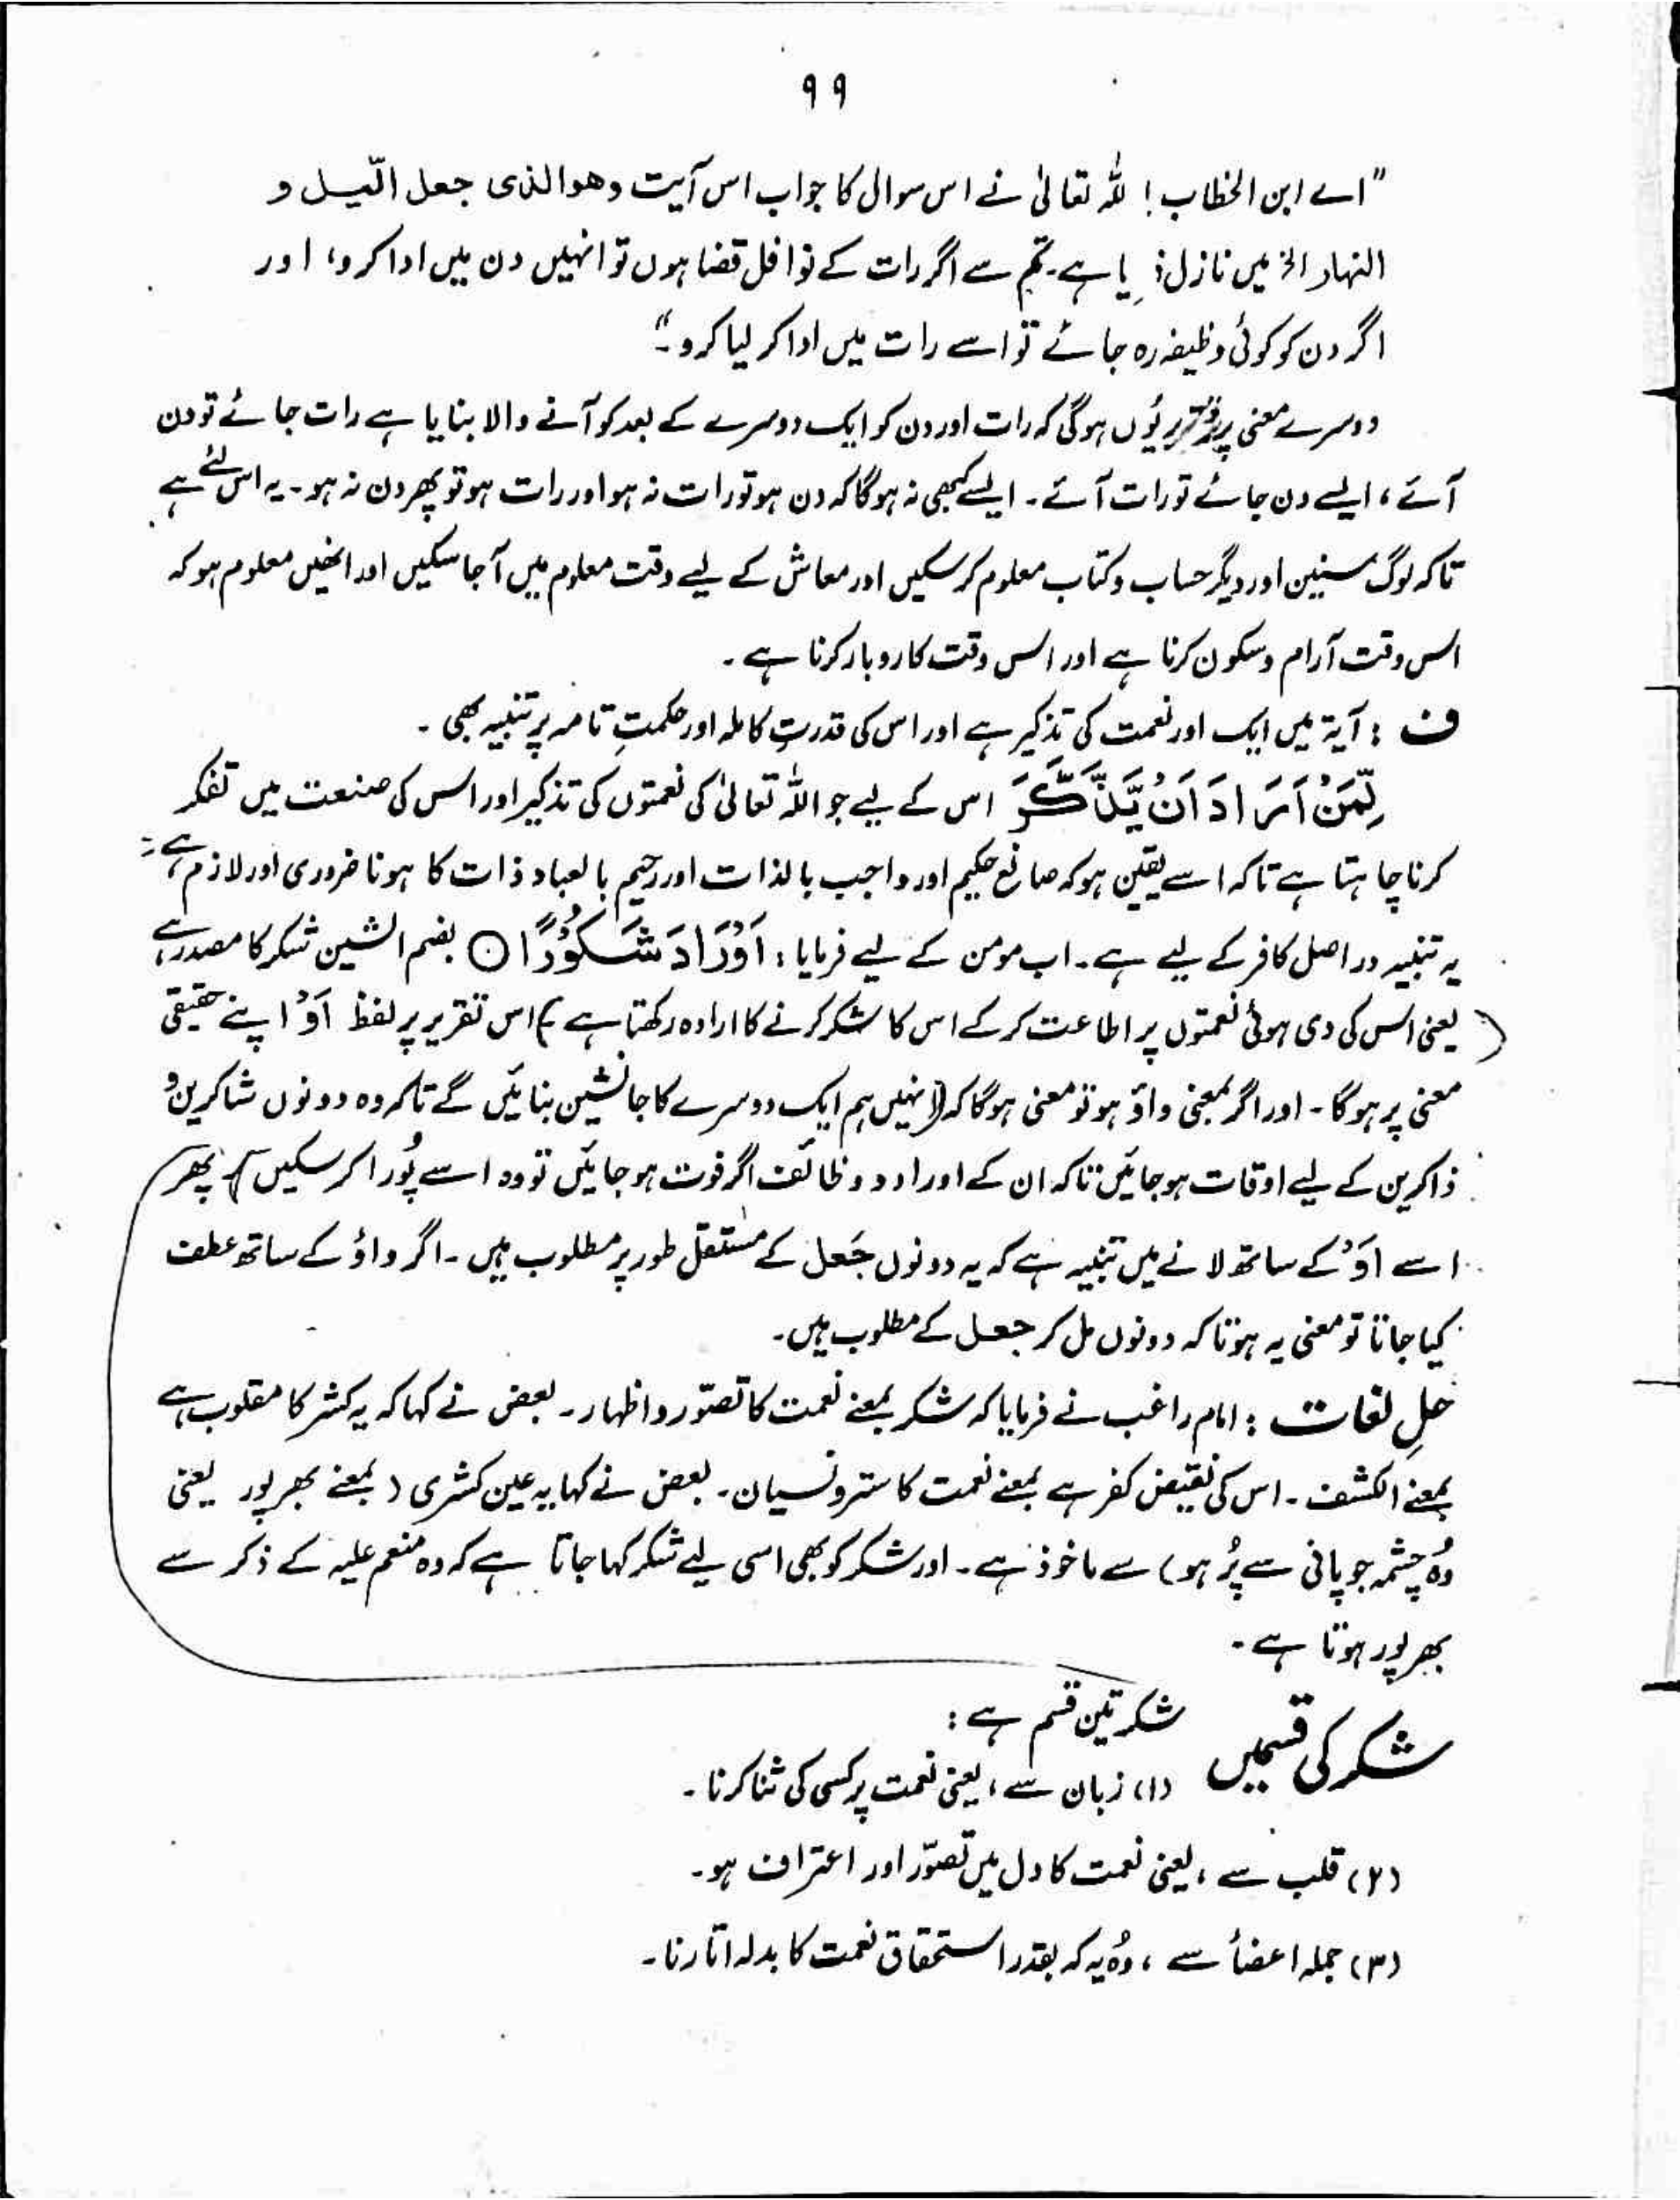 ۹۹
"اے ابن الخطاب! للہ تعالیٰ نے اس سوال کا جواب اس آیت وھو الذی جعل الّیل و
النہار الخ میں نازل یا ہے۔ تم سے اگر رات کے نوافل قضا ہوں تو انہیں دن میں ادا کرو، اور
اگر دن کو کوئی وظیفہ رہ جائے تو اسے رات میں ادا کر لیا کرو۔"
دوسرے معنی پر یُوں ہوگی کہ رات اور دن کو ایک دوسرے کے بعد کو آنے والا بنایا ہے رات جائے تو دن
آئے، ایسے دن جائے تو رات آئے۔ ایسے کبھی نہ ہوگا کہ دن ہو تو رات نہ ہو اور رات ہو تو پھر دن نہ ہو۔ یہ اس لئے ہے
تاکہ لوگ سنین اور دیگر حساب و کتاب معلوم کر سکیں اور معاش کے لیے وقت معلوم میں آ جا سکیں اور انھیں معلوم ہو کہ
اس وقت آرام و سکون کرنا ہے اور اس وقت کاروبار کرنا ہے۔
ف : آیۃ میں ایک اور نعمت کی تذکیر ہے اور اس کی قدرتِ کاملہ اور حکمتِ تامہ پر تنبیہ بھی۔
لِّمَنْ اَرَادَ اَنْ يَّذَّكَّرَ اس کے لیے جو اللہ تعالیٰ کی نعمتوں کی تذکیر اور اس کی صنعت میں تفکر
کرنا چاہتا ہے تاکہ اسے یقین ہو کہ صانع حکیم اور واجب بالذات اور رحیم بالعباد ذات کا ہونا ضروری اور لازم ہے۔
یہ تنبیہ دراصل کافر کے لیے ہے۔ اب مومن کے لیے فرمایا : اَوْ رَادَ شُكُوْرًا ○ بضم الشین شکر کا مصدر ہے
(یعنی اس کی دی ہوئی نعمتوں پر اطاعت کر کے اس کا شکر کرنے کا ارادہ رکھتا ہے) اس تقریر پر لفظ اَوْ اپنے حقیقی
معنی پر ہوگا۔ اور اگر بمعنی واؤ ہو تو معنی ہوگا کہ (انہیں ہم ایک دوسرے کا جانشین بنائیں گے تاکہ وہ دونوں شاکرین و
ذاکرین کے لیے اوقات ہو جائیں تاکہ ان کے اوراد و وظائف اگر فوت ہو جائیں تو وہ اسے پُورا کر سکیں) پھر
اسے اَوْ کے ساتھ لانے میں تنبیہ ہے کہ یہ دونوں جَعل کے مستقل طور پر مطلوب ہیں۔ اگر واؤ کے ساتھ عطف
کیا جاتا تو معنی یہ ہوتا کہ دونوں مل کر جعل کے مطلوب ہیں۔
حلِ لغات : امام راغب نے فرمایا کہ شکر بمعنے نعمت کا تصوّر و اظہار۔ بعض نے کہا کہ یہ کشر کا مقلوب ہے
بمعنے الکشف۔ اس کی نقیض کفر ہے بمعنے نعمت کا ستر و نسیان۔ بعض نے کہا یہ عین کشری (بمعنے بھرپور یعنی
وُہ چشمہ جو پانی سے پُر ہو) سے ماخوذ ہے۔ اور شکر کو بھی اسی لیے شکر کہا جاتا ہے کہ وہ منعم علیہ کے ذکر سے
بھرپور ہوتا ہے۔
شکر کی قسمیں شکر تین قسم ہے :
(۱) زبان سے، یعنی نعمت پر کسی کی ثنا کرنا۔
(۲) قلب سے، یعنی نعمت کا دل میں تصوّر اور اعتراف ہو۔
(۳) جملہ اعضأ سے، وُہ یہ کہ بقدر استحقاق نعمت کا بدلہ اتارنا۔